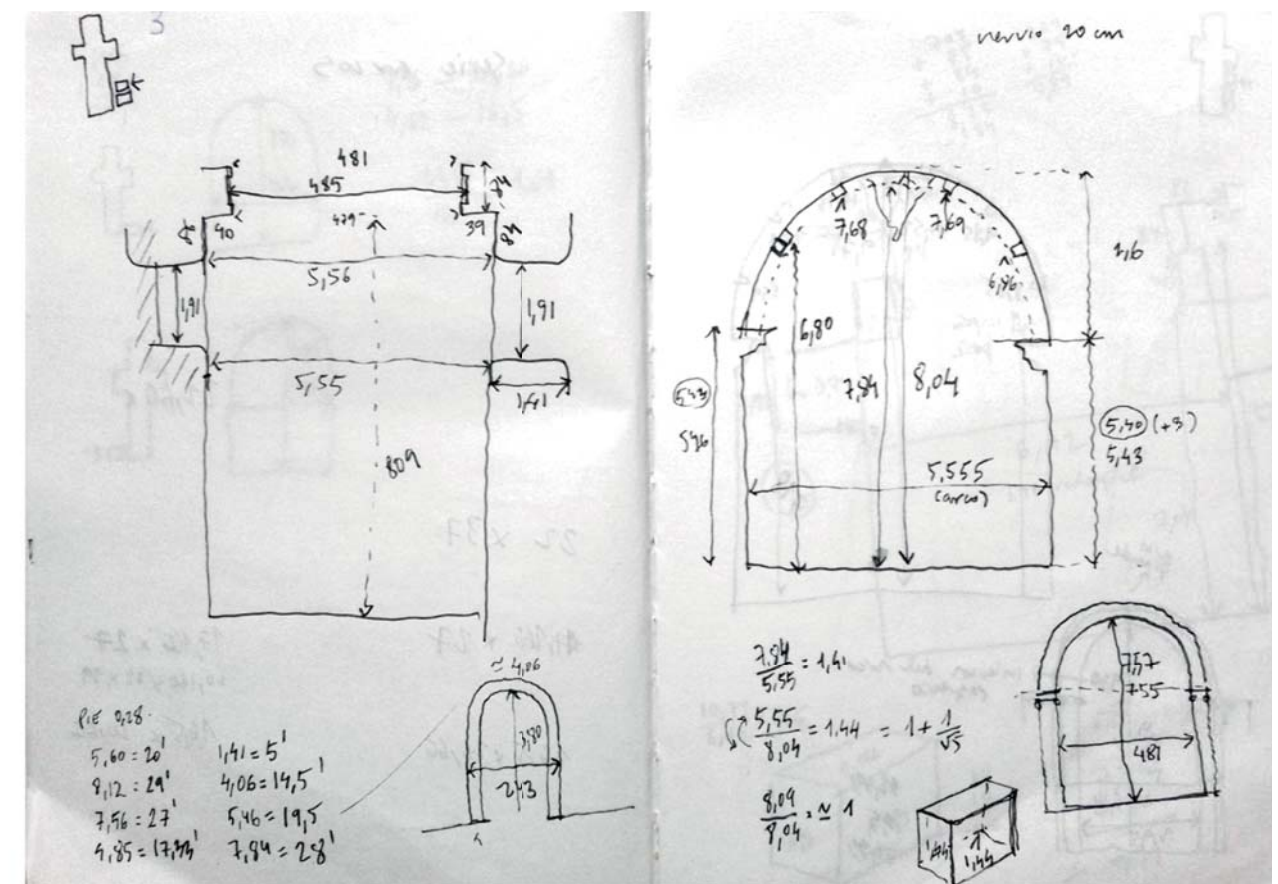 3
481
485
84
80
40
479
39
84
5,56
1,91
1,91
5,55
1,41
809
≃ 4,06
3,80
243
PIE 0,28
5,60 = 20'
8,12 = 29'
7,56 = 27'
4,85 = 17,33'
1,41 = 5'
4,06 = 14,5'
5,46 = 19,5
7,84 = 28'
nervio 20 cm
7,68
7,69
6,86
2,6
6,80
7,84
8,04
543
546
5,40 (+3)
5,43
5,555
(arco)
7,84 / 5,55 = 1,41
5,55 / 8,04 = 1,44 = 1 + 1/√5
8,09 / 8,04 = ≃ 1
7,57
755
481
1,44